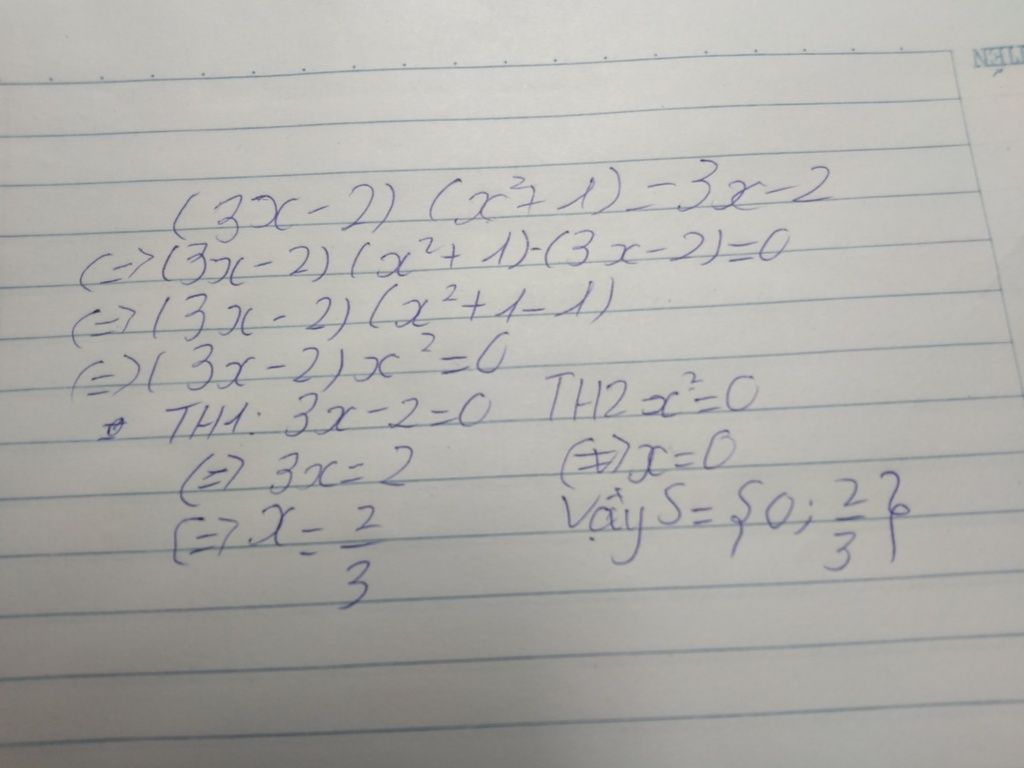 (3x-2) (x²+1)=3x-2
(=>(3x-2) (x²+1)-(3x-2)=0
(=>(3x-2) (x²+1-1)
(=>(3x-2)x²=0
TH1: 3x-2=0 TH2 x²=0
(=> 3x=2 (=>x=0
(=>x=2/3 Vậy S={0;2/3}